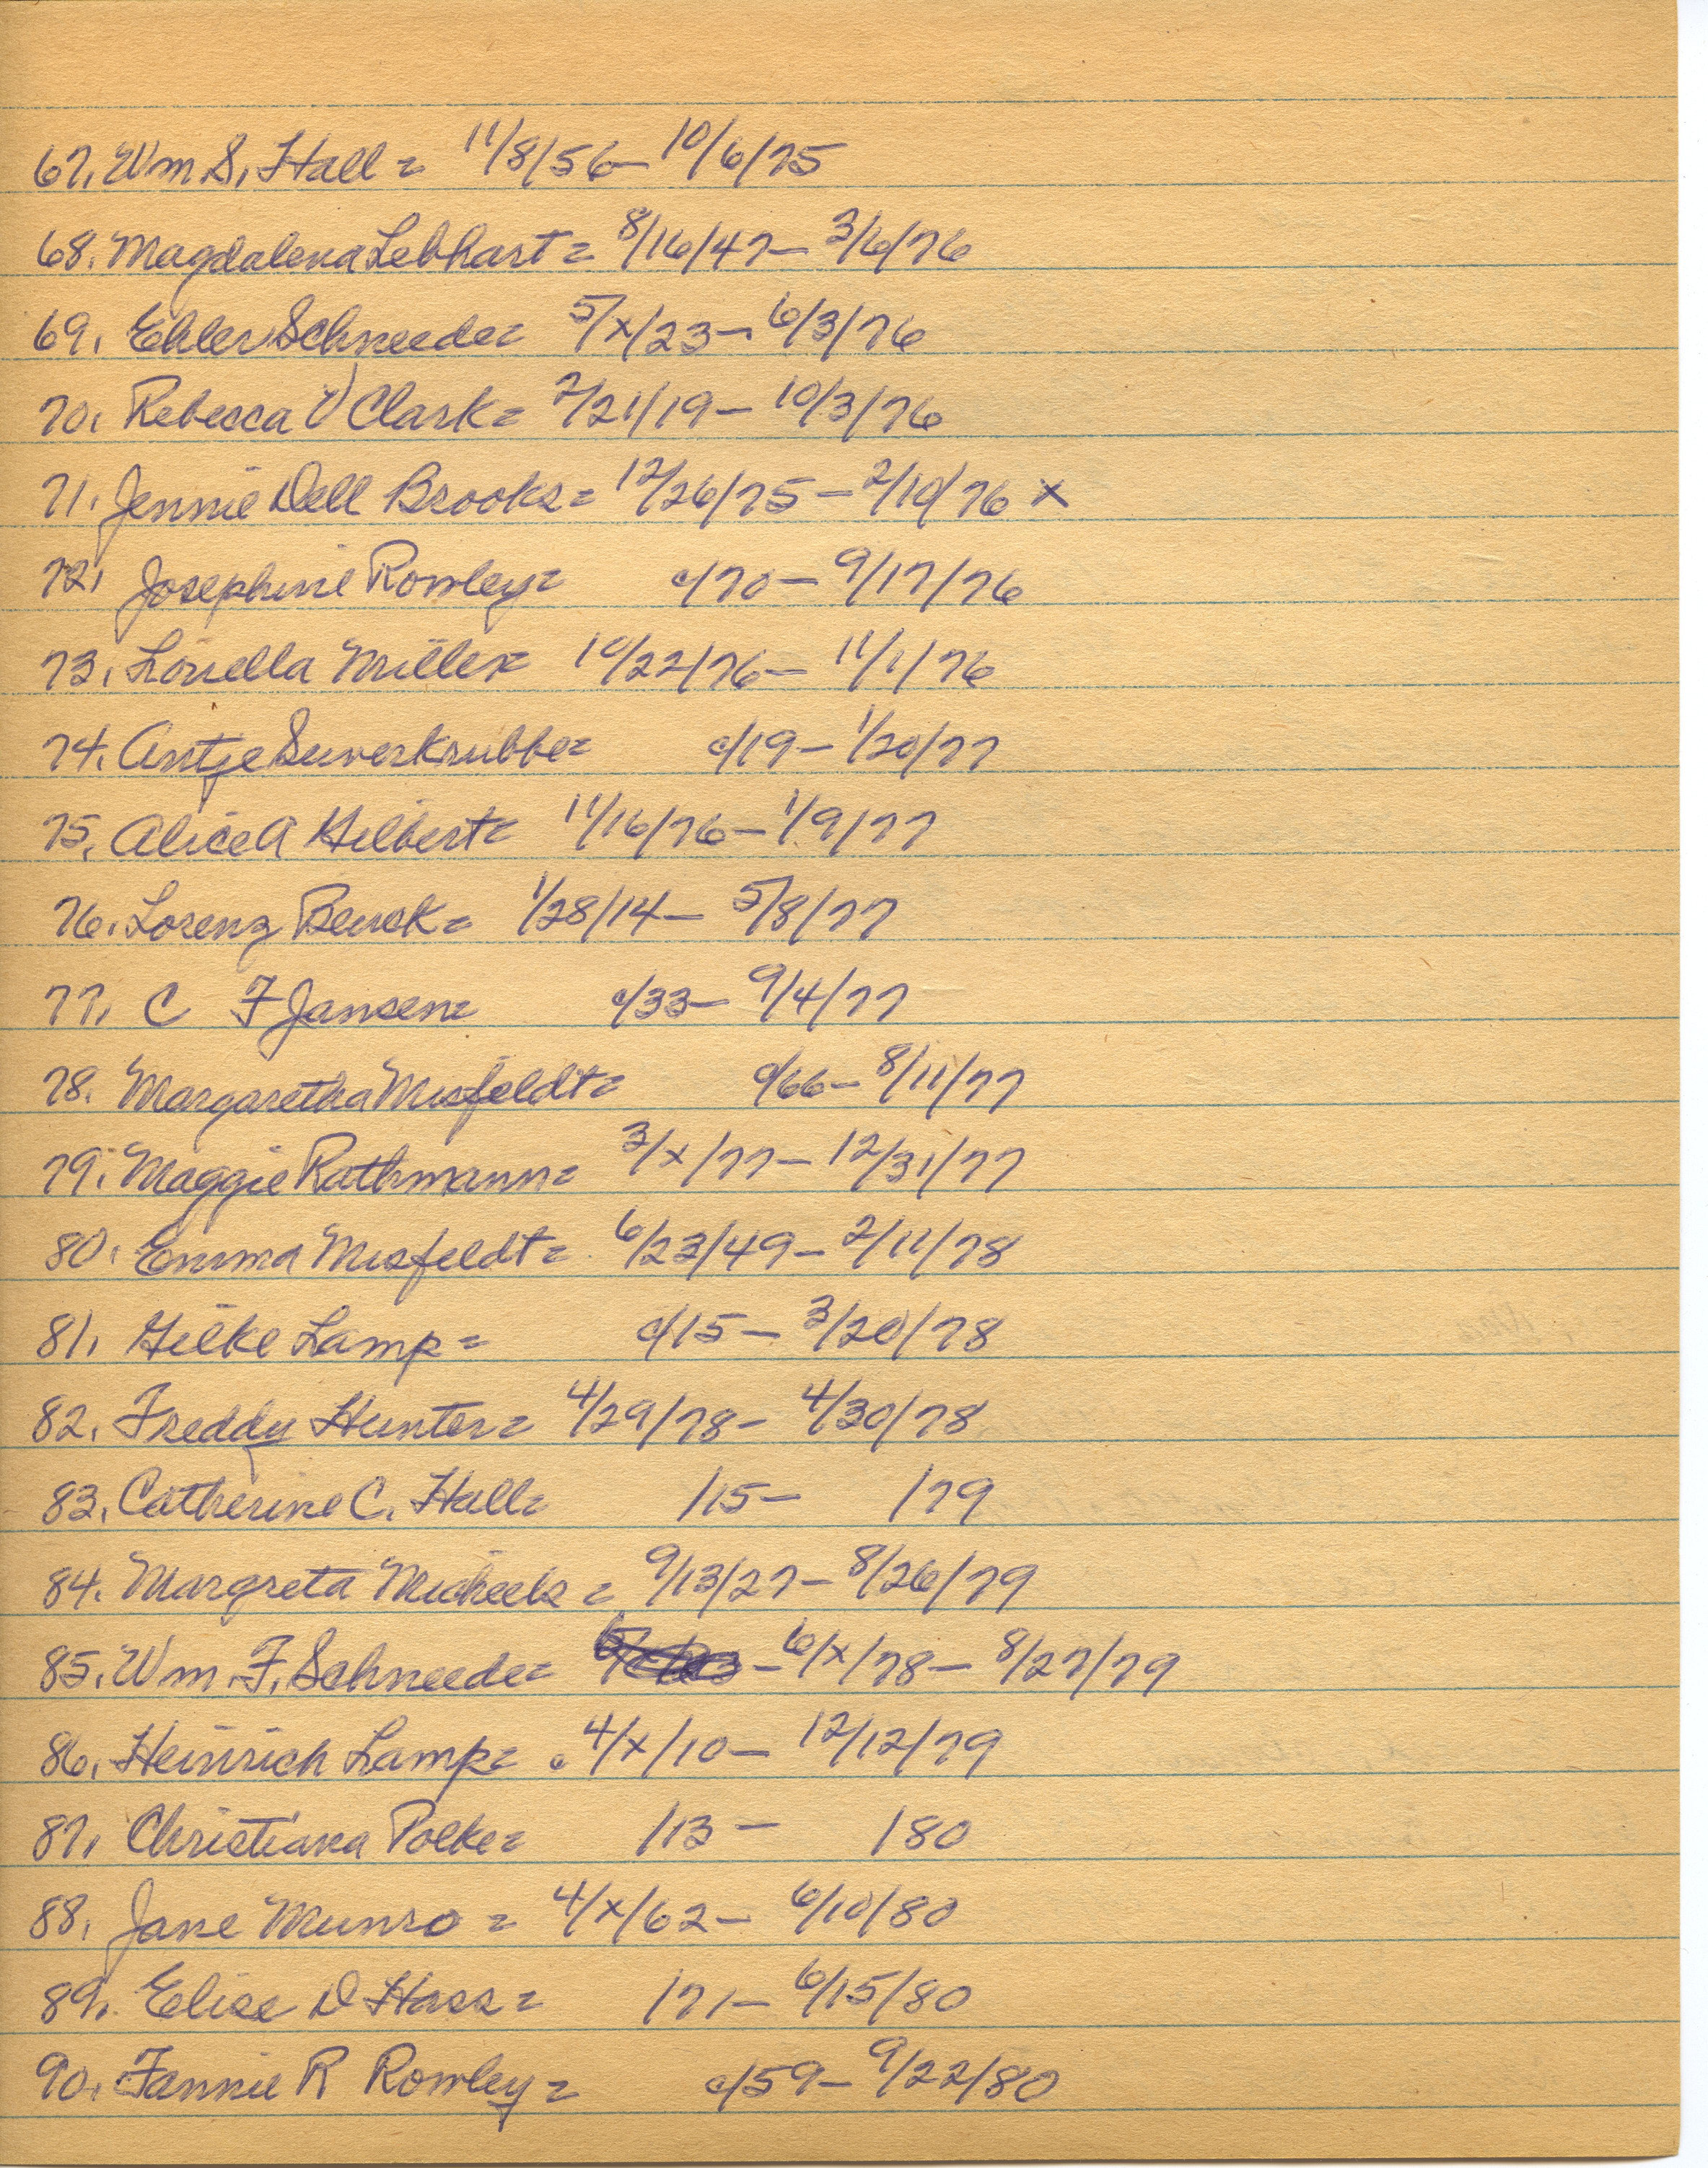 67. Wm S. Hall = 11/8/56 - 10/6/75
68. Magdalena Lebhart = 8/16/47 - 3/6/76
69. Ehler Schneede = 5/x/23 - 6/3/76
70. Rebecca V Clark = 2/21/19 - 10/3/76
71. Jennie Dell Brooks = 12/26/75 - 2/10/76 x
72. Josephine Rowley = c/70 - 9/17/76
73. Louella Miller = 10/22/76 - 11/1/76
74. Antje Suverkrubbe = c/19 - 1/20/77
75. Alice A Gilbert = 11/16/76 - 1/9/77
76. Lorenz Beuck = 1/28/14 - 5/8/77
77. C F Jansen = c/33 - 9/4/77
78. Margaretha Misfeldt = c/66 - 8/11/77
79. Maggie Rathmann = 3/x/77 - 12/31/77
80. Emma Misfeldt = 6/23/49 - 2/11/78
81. Hilke Lamp = c/15 - 3/20/78
82. Freddy Hunter = 4/29/78 - 4/30/78
83. Catherine C. Hall = /15 - /79
84. Margreta Micheels = 9/13/27 - 8/26/79
85. Wm. F. Schneede = - 6/x/78 - 8/27/79
86. Heinrich Lamp = c 4/x/10 - 12/12/79
87. Christiana Poelke = /13 - /80
88. Jane Munro = 4/x/62 - 6/10/80
89. Elise D Hass = /71 - 6/15/80
90. Fannie R Rowley = c/59 - 9/22/80